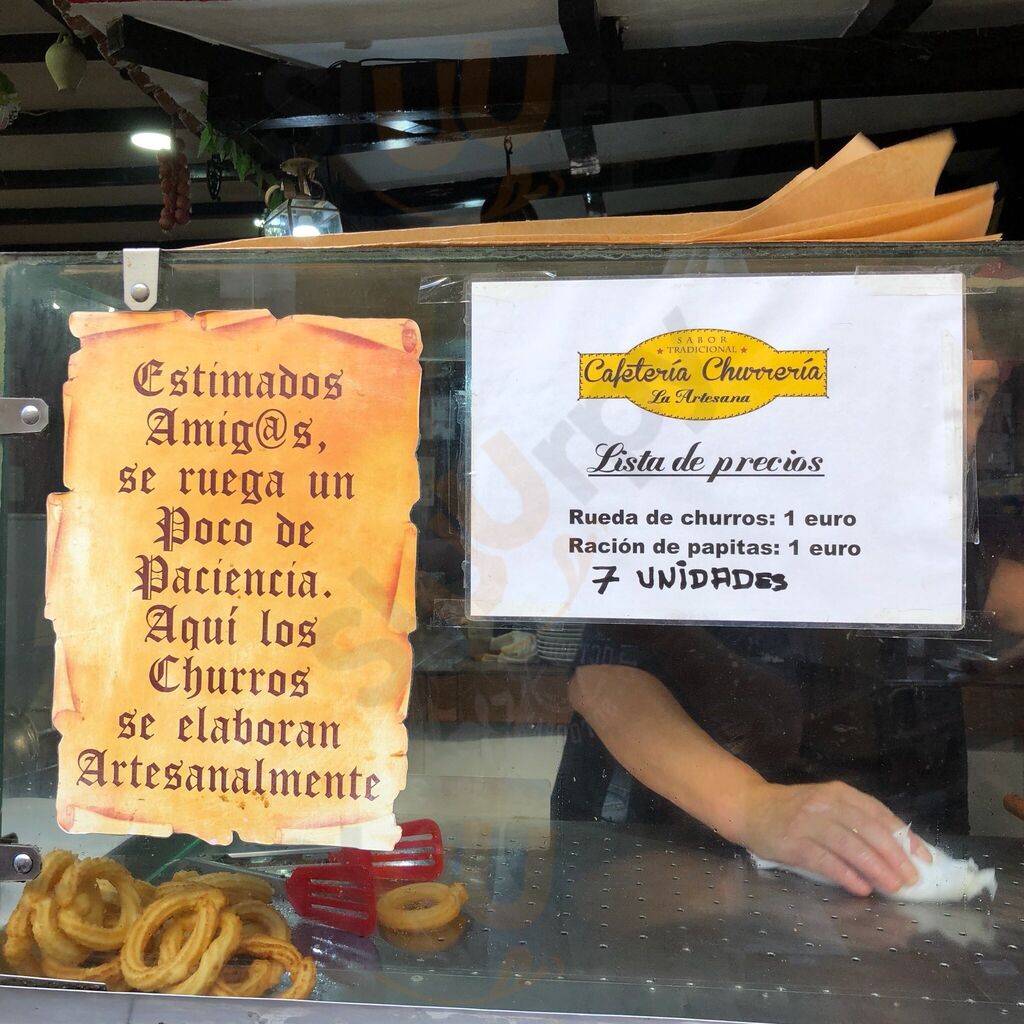 Estimados
Amig@s,
se ruega un
Poco de
Paciencia.
Aquí los
Churros
se elaboran
Artesanalmente
SABOR
TRADICIONAL
Cafetería Churrería
La Artesana
Lista de precios
Rueda de churros: 1 euro
Ración de papitas: 1 euro
7 UNIDADES
slurpy
slurpy
slurpy